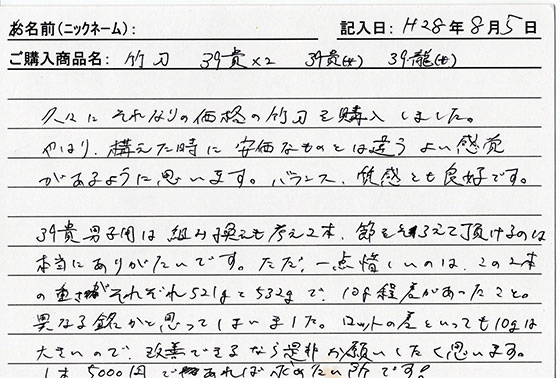 お名前(ニックネーム): 記入日: H28年8月5日
ご購入商品名: 竹刀 39貴×2 39貴(女) 39龍(女)
久々にそれなりの価格の竹刀を購入しました。
やはり、構えた時に安価なものとは違うよい感覚
があるように思います。バランス、質感とも良好です。
39貴男子用は組み換えも考え2本、節を揃えて頂けるのは
本当にありがたいです。ただ、一点惜しいのは、この2本
の重さがそれぞれ521gと532gで、10g程差があったこと。
異なる銘かと思ってしまいました。ロットの差といっても10gは
大きいので、改善できるなら是非お願いしたく思います。
1本5000円であれば求めたい所です!